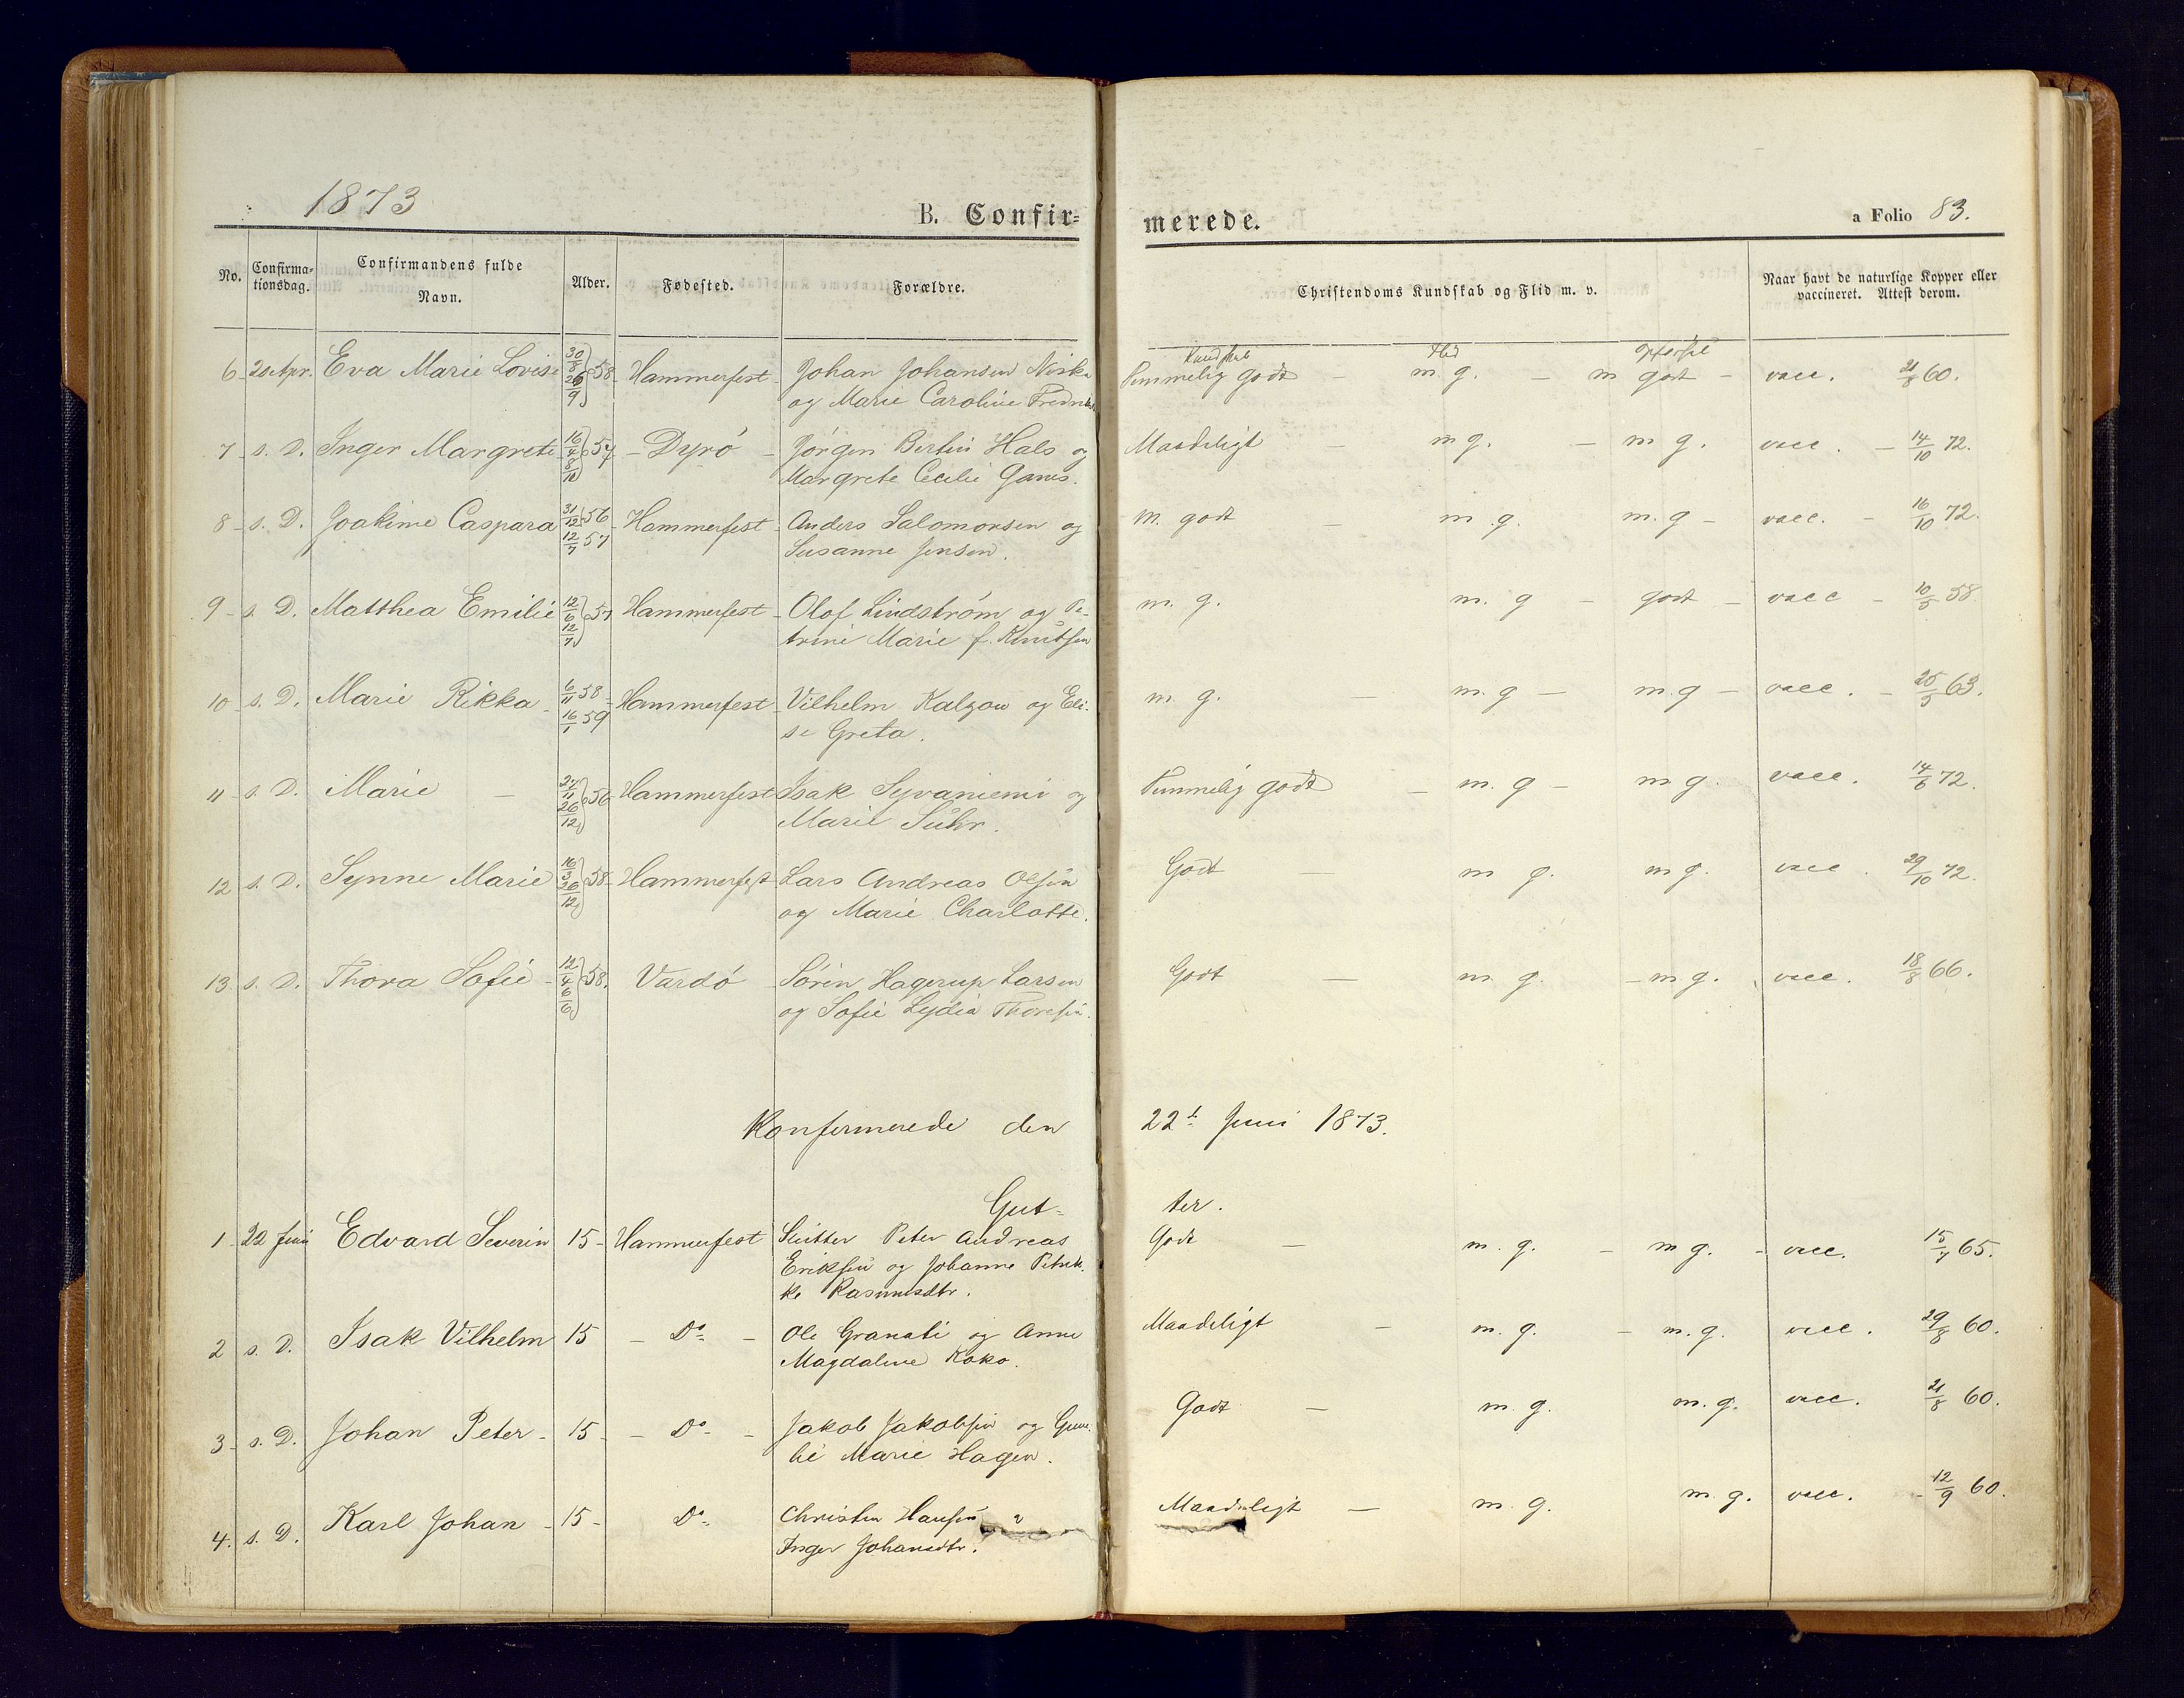 1873
B. Confir=
merede.
a Folio 83.
No.
Confirma-
tionsdag.
Confirmandens fulde
Navn.
Alder.
Fødested.
Forældre.
Christendoms Kundskab og Flid m. v.
Naar havt de naturlige Kopper eller
vaccineret. Attest derom.
Kundskab Flid
6 - 20 Apr. Eva Marie Lovise 30/8 26/9 58 - Hammerfest - Johan Johansen Niska Temmelig godt - m. g. - m godt - vacc. 21/8 60.
og Marie Caroline
7 - s. D. Inger Margrete 16/4 8/10 57 - Dyrö - Jørgen Bertin Hals og Maadeligt - m g. - m g. vacc. - 14/10 72.
Margrete Cecilie
8 - s. D. Joakime Caspara 31/12 56 12/7 57 - Hammerfest - Anders Salomonsen og M. godt - m. g. m. g - vacc. - 16/10 72.
Susanne Jensen.
9 - s. D. Matthea Emilie 12/6 12/7 57 Hammerfest - Olof Lindström og Pe- m. g. m. g - godt - vacc - 10/5 58.
trine Marie f. Knutsen
10 - s. D. Marie Rikka - 6/11 58 - 16/1 59 Hammerfest - Vilhelm Kalzow og Eli- m. g. - m. g - m. g - vacc. - 25/5 63.
se Greta.
11 - s. D. Marie - 27/11 26/12 56 Hammerfest Isak Syvaniemi og Temmelig godt - m. g - m g. vacc. 14/6 72.
Marie Suhr.
12 s. D. Synne Marie 16/3 26/12 58 - Hammerfest Lars Andreas Olsen Godt - m g. m g. vacc. 29/10 72.
og Marie Charlotte.
13. s. D. Thora Sofie - 12/4 6/6 58. Vardö - Sören Hagerup Larsen Godt - m. g. - m g. vacc. 18/8 66.
og Sofie Lydia Thoresen.
Konfirmerede den 22d Juni 1873.
Gut- ter.
1 - 22 Juni Edvard Severin 15 - Hammerfest Peter Andreas Godt - m. g. - m g. - vacc. 15/7 65.
Eriksen og Johanne Petrik-
ke Rasmusdtr.
2 s. D. Isak Vilhelm 15 - Do - Ole Granati og Anne Maadeligt - m. g. - m. g. vacc. 29/8 60.
Magdalene Koko.
3 - s. D. Johan Peter - 15 - - Do - Jakob Jakobsen og Gun- Godt - m. g. m. g. vacc. 21/8 60.
Marie Hagen.
4. s. D. Karl Johan - 15 - Do Christen Hansen Maadeligt - m. g. m. g. vacc. - 12/9 60.
Inger Johansdtr.